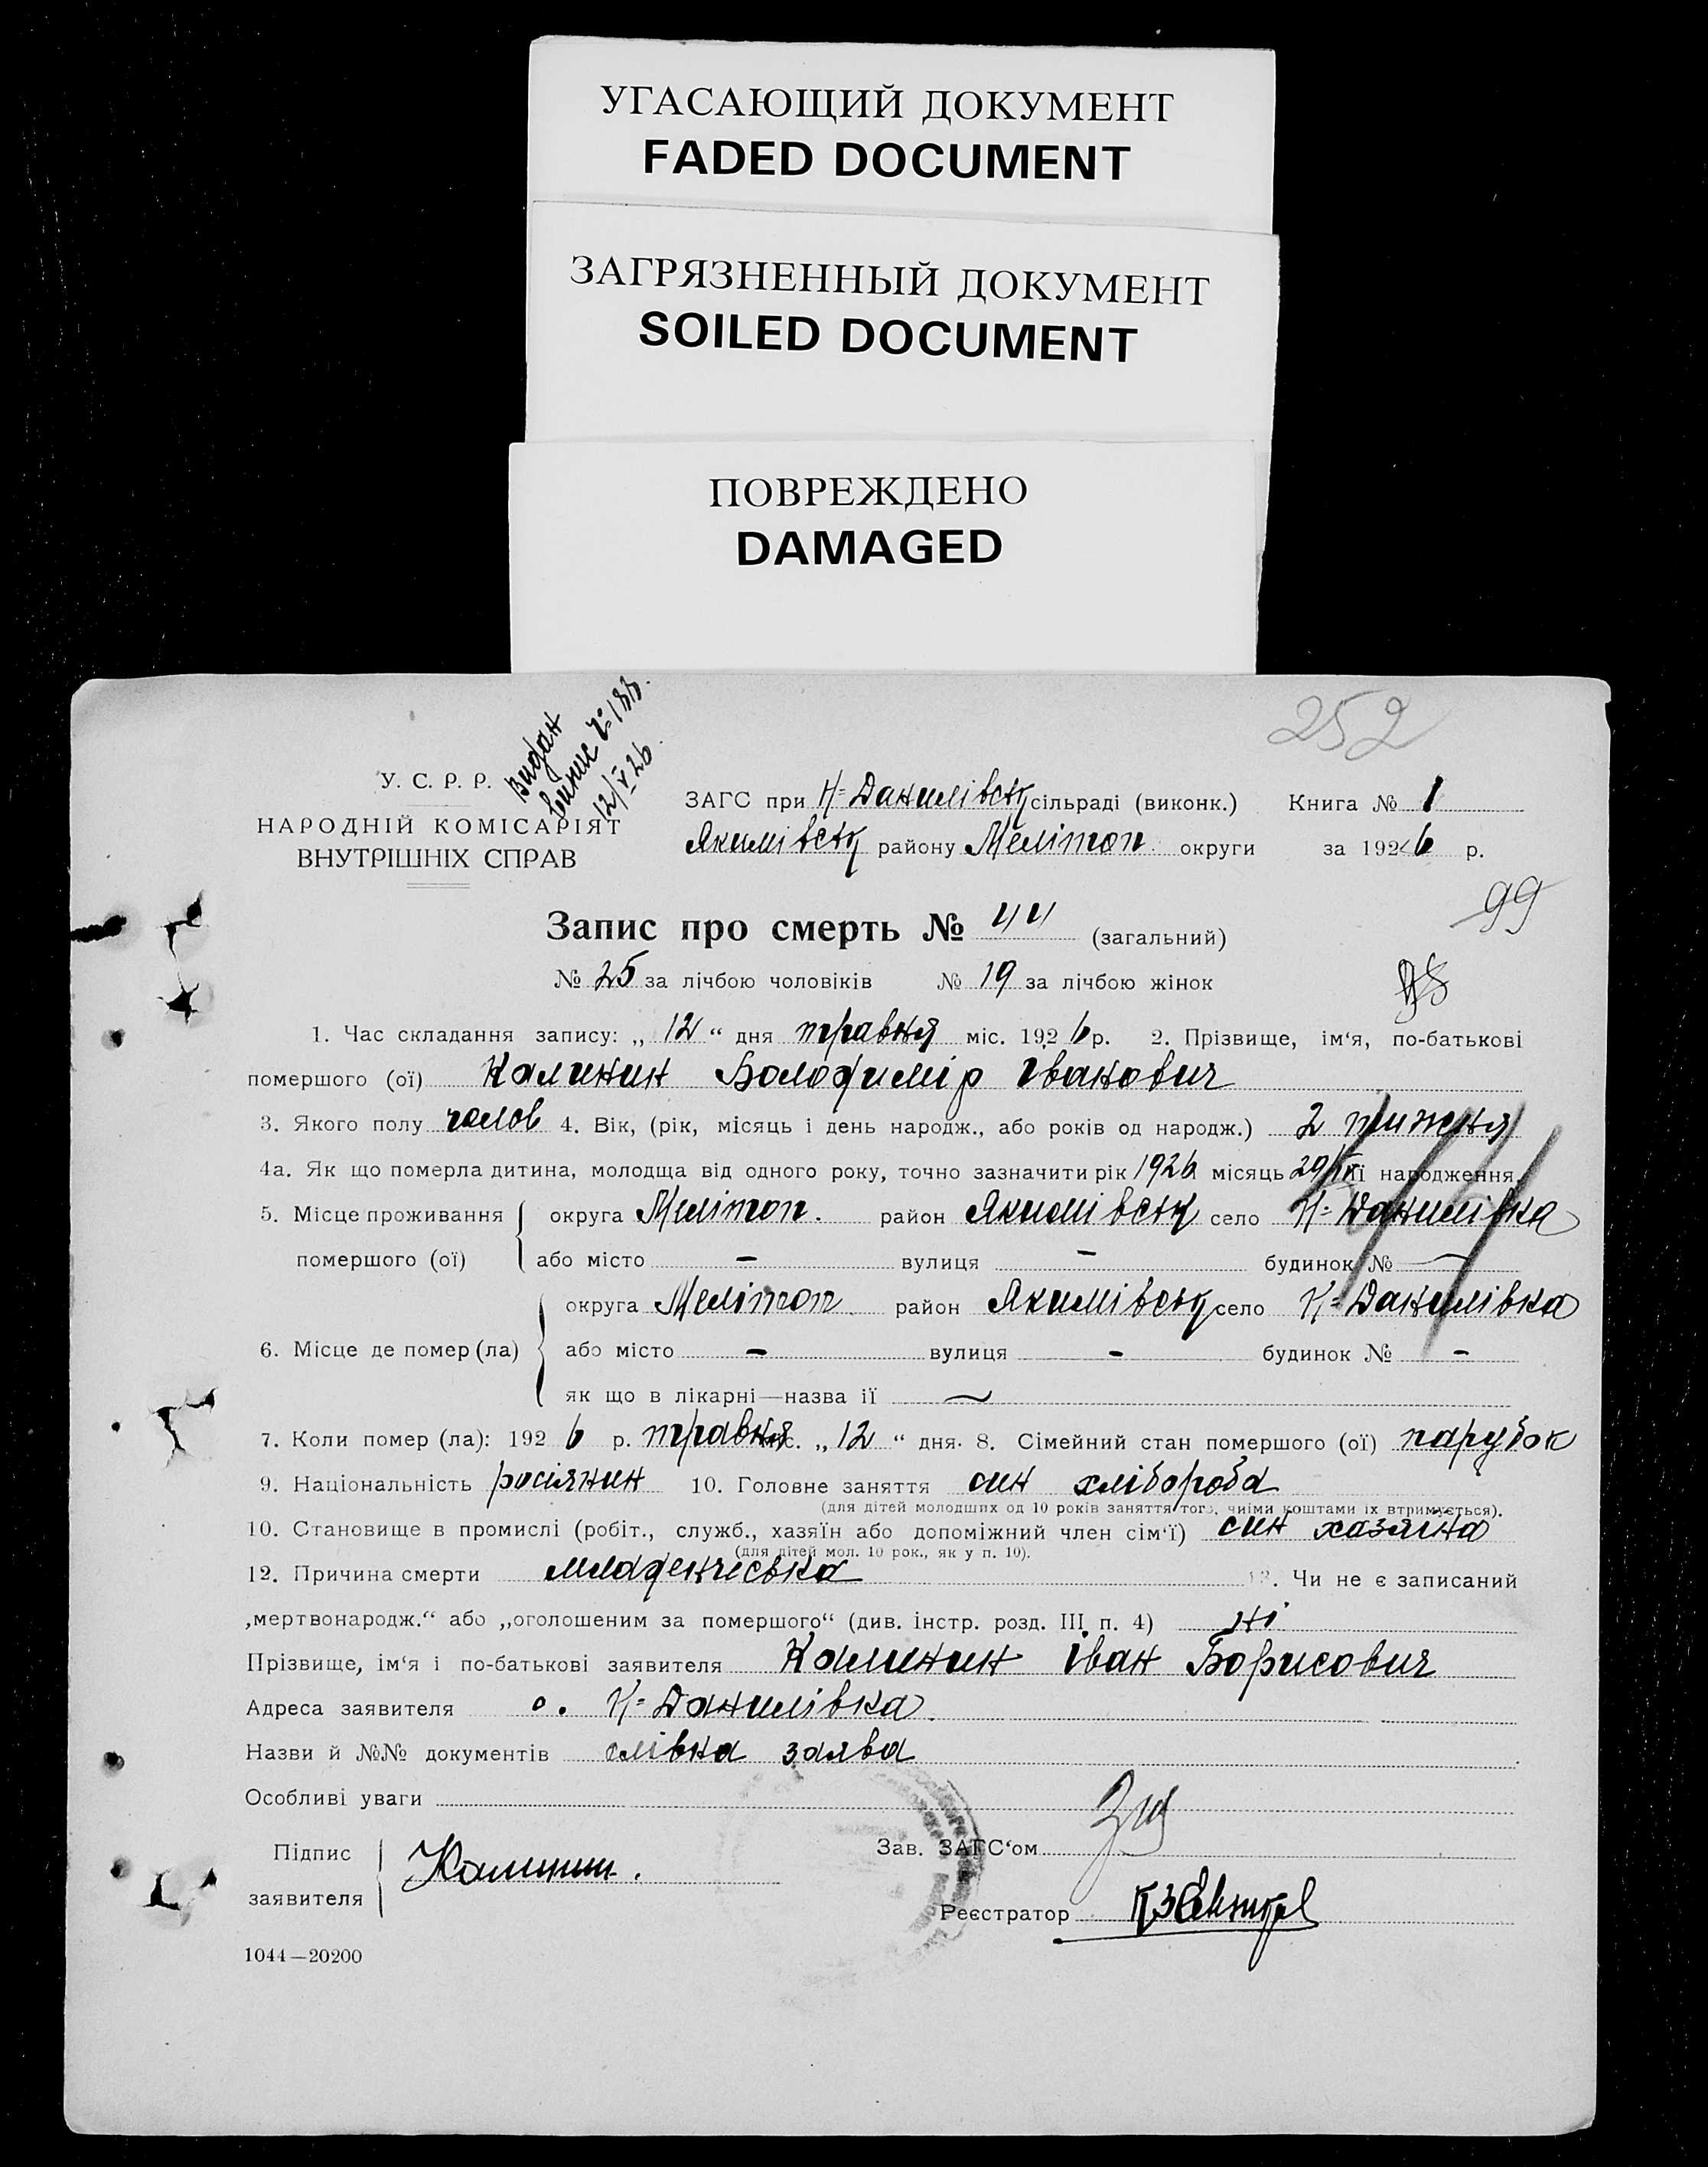 УГАСАЮЩИЙ ДОКУМЕНТ
FADED DOCUMENT
ЗАГРЯЗНЕННЫЙ ДОКУМЕНТ
SOILED DOCUMENT
ПОВРЕЖДЕНО
DAMAGED
252
Видан
12/V 26
У. С. Р. Р.
НАРОДНІЙ КОМІСАРІЯТ
ВНУТРІШНІХ СПРАВ
ЗАГС при Н-Данилівськ сільраді (виконк.) Книга № 1
Якимівськ району Мелітоп. округи за 1926 р.
99
Запис про смерть № 44 (загальний)
№ 25 за лічбою чоловіків № 19 за лічбою жінок
98
1. Час складання запису: „ 12 “ дня травня міс. 192 6 р. 2. Прізвище, ім‘я, по-батькові
помершого (ої) Калинин Володимір Іванович
3. Якого полу чолов 4. Вік, (рік, місяць і день народж., або років од народж.) 2 тижня
4а. Як що померла дитина, молодща від одного року, точно зазначити рік 1926 місяць 29/IV її народження.
5. Місце проживання округа Мелітоп. район Якимівськ село Н-Данилівка
помершого (ої) або місто — вулиця — будинок № —
округа Мелітоп. район Якимівськ село Н-Данилівка
6. Місце де помер (ла) або місто — вулиця — будинок № —
як що в лікарні—назва ії —
7. Коли помер (ла): 192 6 р. травня міс. „ 12 “ дня. 8. Сімейний стан помершого (ої) парубок
9. Національність росіянин 10. Головне заняття син хлібороба
(для дітей молодших од 10 років заняття того, чиїми коштами їх втримується).
10. Становище в промислі (робіт., служб., хазяїн або допоміжний член сім‘ї) син хазяїна
(для дітей мол. 10 рок., як у п. 10).
12. Причина смерти младенчеська 13. Чи не є записаний
„мертвонародж.“ або „оголошеним за помершого“ (див. інстр. розд. III п. 4) ні
Прізвище, ім‘я і по-батькові заявителя Калинин Іван Борисович
Адреса заявителя с. Н-Данилівка.
Назви й №№ документів слівна заява
Особливі уваги
Підпис
заявителя Калинин.
Зав. ЗАГС‘ом
Реєстратор
1044—20200